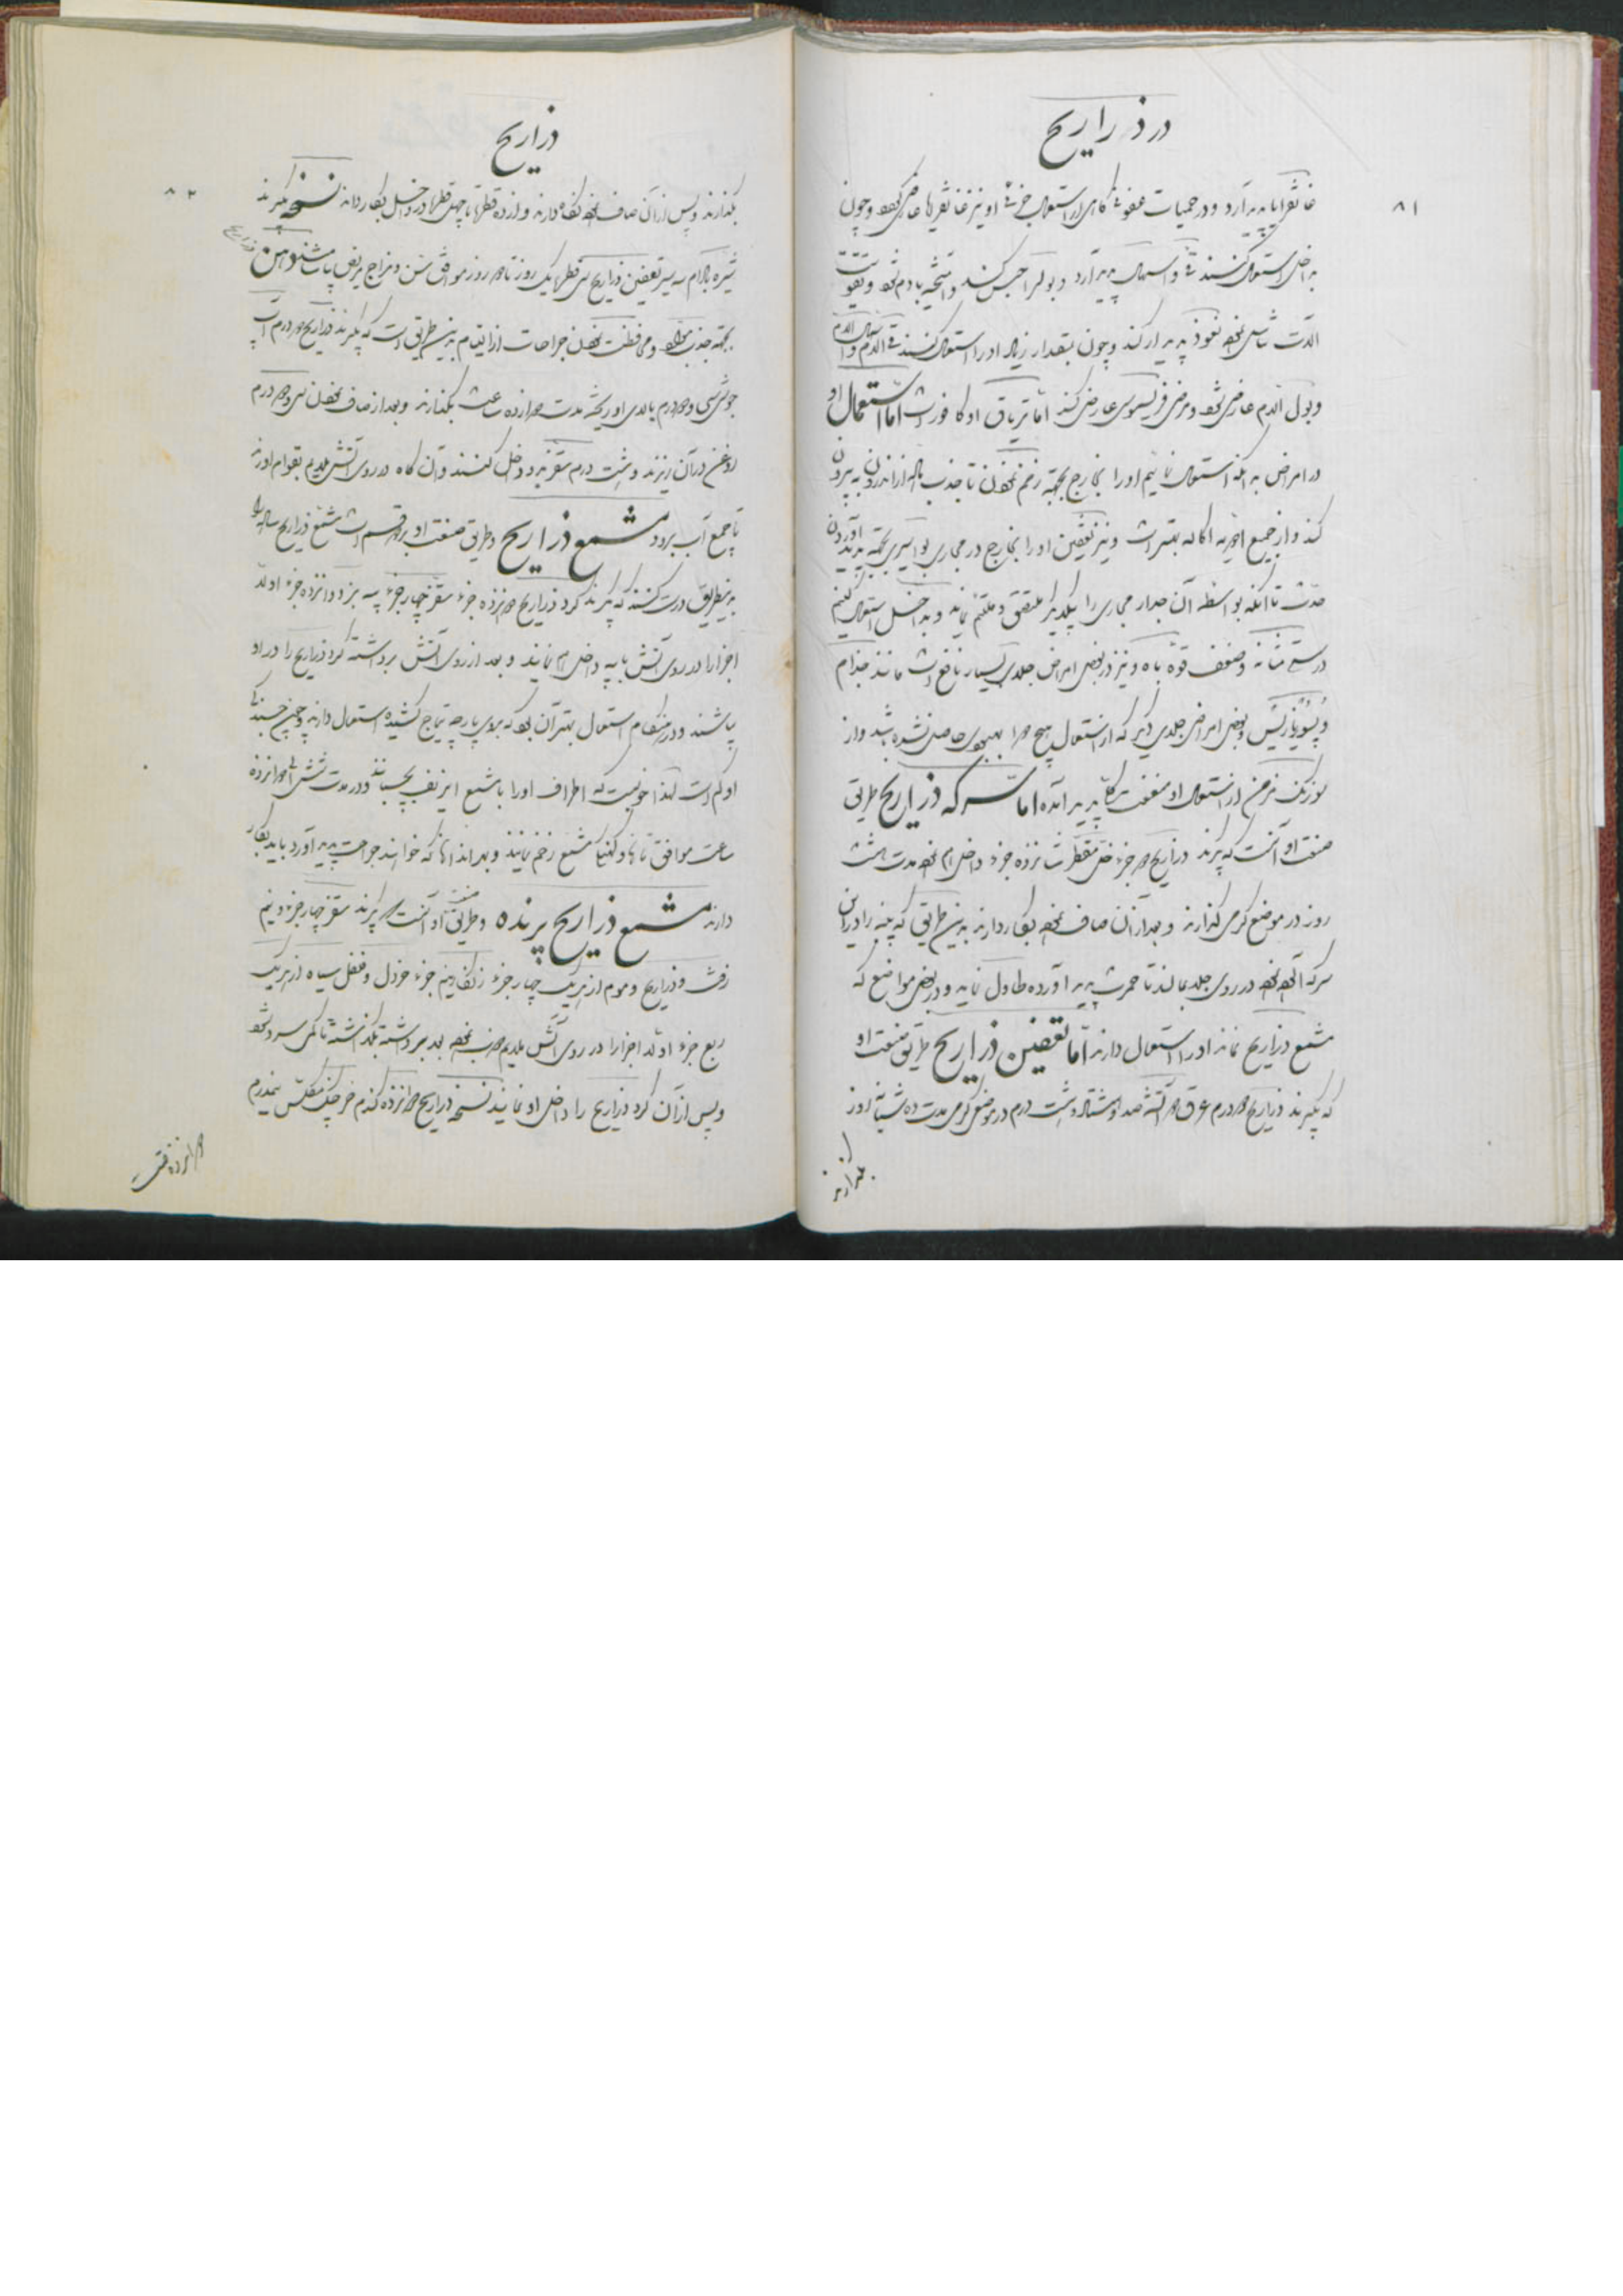 ۸۱
در ذراریح
غانقرایا پدید آرد و در حمیات عفونی گاهی از استعمال خرفی او نیز غانقریا عارض گردد و چون
به داخل استعمال کنند قی و اسهال پدید آرد و بول را حبس کند و آلت تناسل نعوذ
پدیدار کند و چون بمقدار زیاد او را استعمال کنند قی الدم و اسهال الدم
و بول الدم عارض شود و مرض عارض کند اما تریاق او کافور است اما استعمال او
در امراض بدانکه استعمال نمائیم او را بخارج بجهة زخم نمودن تا جذب ماده از اندرون به بیرون
کند و از جمیع ادویه اکاله بهتر است و نیز تعفین او را بخارج در مجاری بواسیری بجهة پدید آوردن
حدت تا آنکه بواسطه آن جدار مجاری را بیکدیگر ملتصق و ملتئم نماید و بداخل استعمال کنیم
در سستی مثانه و ضعف قوه باه و نیز در بعضی امراض جلدی بسیار نافع است مانند جذام
و پسوریازیس و بعضی امراض جلدی دیگر که از استعمال هیچ دوا بهبودی حاصل نشده باشد و از
سوزنک مزمن از استعمال او منفعت پدید آمده اما سرکه ذراریح طریق
صنعت او آنست که گیرند ذراریح دو جزء خل مقطر شانزده جزء داخل هم نموده مدت هشت
روز در موضع گرمی گذارند و بعد از آن صاف نموده بکار دارند بدین طریق که پنبه را در این
سرکه آلوده نموده در روی جلد بمالند تا حمرت پدید آورده طاول نماید و در بعضی مواضع که
مشمع ذراریح نماند او را استعمال دارند اما تعفین ذراریح طریق صنعت او
که بگیرند ذراریح دو درم عرق دو آتشه صد و هشتاد و هشت درم در موضع گرمی مدت ده شبانه روز
بگذارند
۸۲
ذراریح
بگذارند و پس از آن صاف نموده نگاه دارند و از ده قطره تا چهل قطره در داخل بکار دارند نسخه بگیرند
شیره بادام سه سیر تعفین ذراریح سی قطره یک روز تا دو روز موافق سن و مزاج مریض بیاشامند دهن ذراریح
بجهة جذب مواد و محافظت نمودن جراحات از التیام بدین طریق است که بگیرند ذراریح دو درم آب
جوش سی و دو درم بالای او ریخته مدت دوازده ساعت بگذارند و بعد از صاف نمودن سی و دو درم
روغن در آن ریزند و هشت درم سقز داخل کنند و آن گاه در روی آتش ملایم بقوام آورند
تا جمیع آب برود مشمع ذراریح و طریق صنعت او بر دو قسم است مشمع ذراریح ساده
بدینطریق درست کنند که بگیرند گرد ذراریح شانزده جزء سقز چهار جزء پیه بز دوازده جزء اولا
اجزا را در روی آتش با پیه داخل هم نمایند و بعد از روی آتش برداشته گرد ذراریح را در او
بپاشند و در هنگام استعمال بهتر آن بود که بروی پارچه تیماج کشیده استعمال دارند و چون چسبندگی
او کم است لهذا خوبست که اطراف او را با مشمع بچسبانند و در مدت شش الی دوازده
ساعت موافق مشمع زخم نمایند و بهر اندامها که خواهند جراحت پدید آورد باید بکار
دارند مشمع ذراریح پرنده و طریق صنعت او آنست که بگیرند سقز چهار جزء و نیم
زفت و ذراریح و موم از هر یک چهار جزء زنگار نیم جزء خردل و فلفل سیاه از هر یک
ربع جزء اولا اجزا را در روی آتش ملایم ذوب نموده بعد برداشته بگذاشته تا کمی سرد شود
و پس از آن گرد ذراریح را داخل او نمایند نسخه ذراریح دوازده گندم خرچنگ مکلس نیمدرم
دوازده قسمت